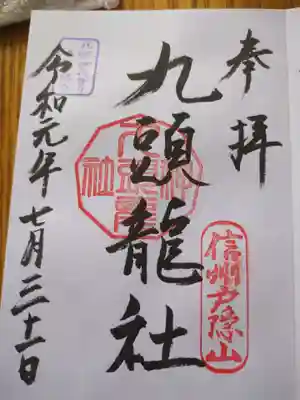 奉拝
信州戸隠山
九頭龍社
令和元年七月三十一日